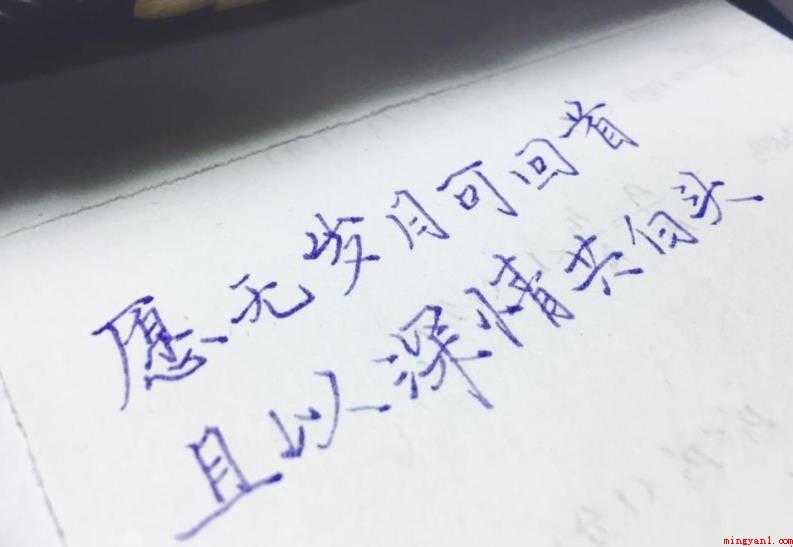 愿无岁月可回首
且以深情共白头
mingyanl.com